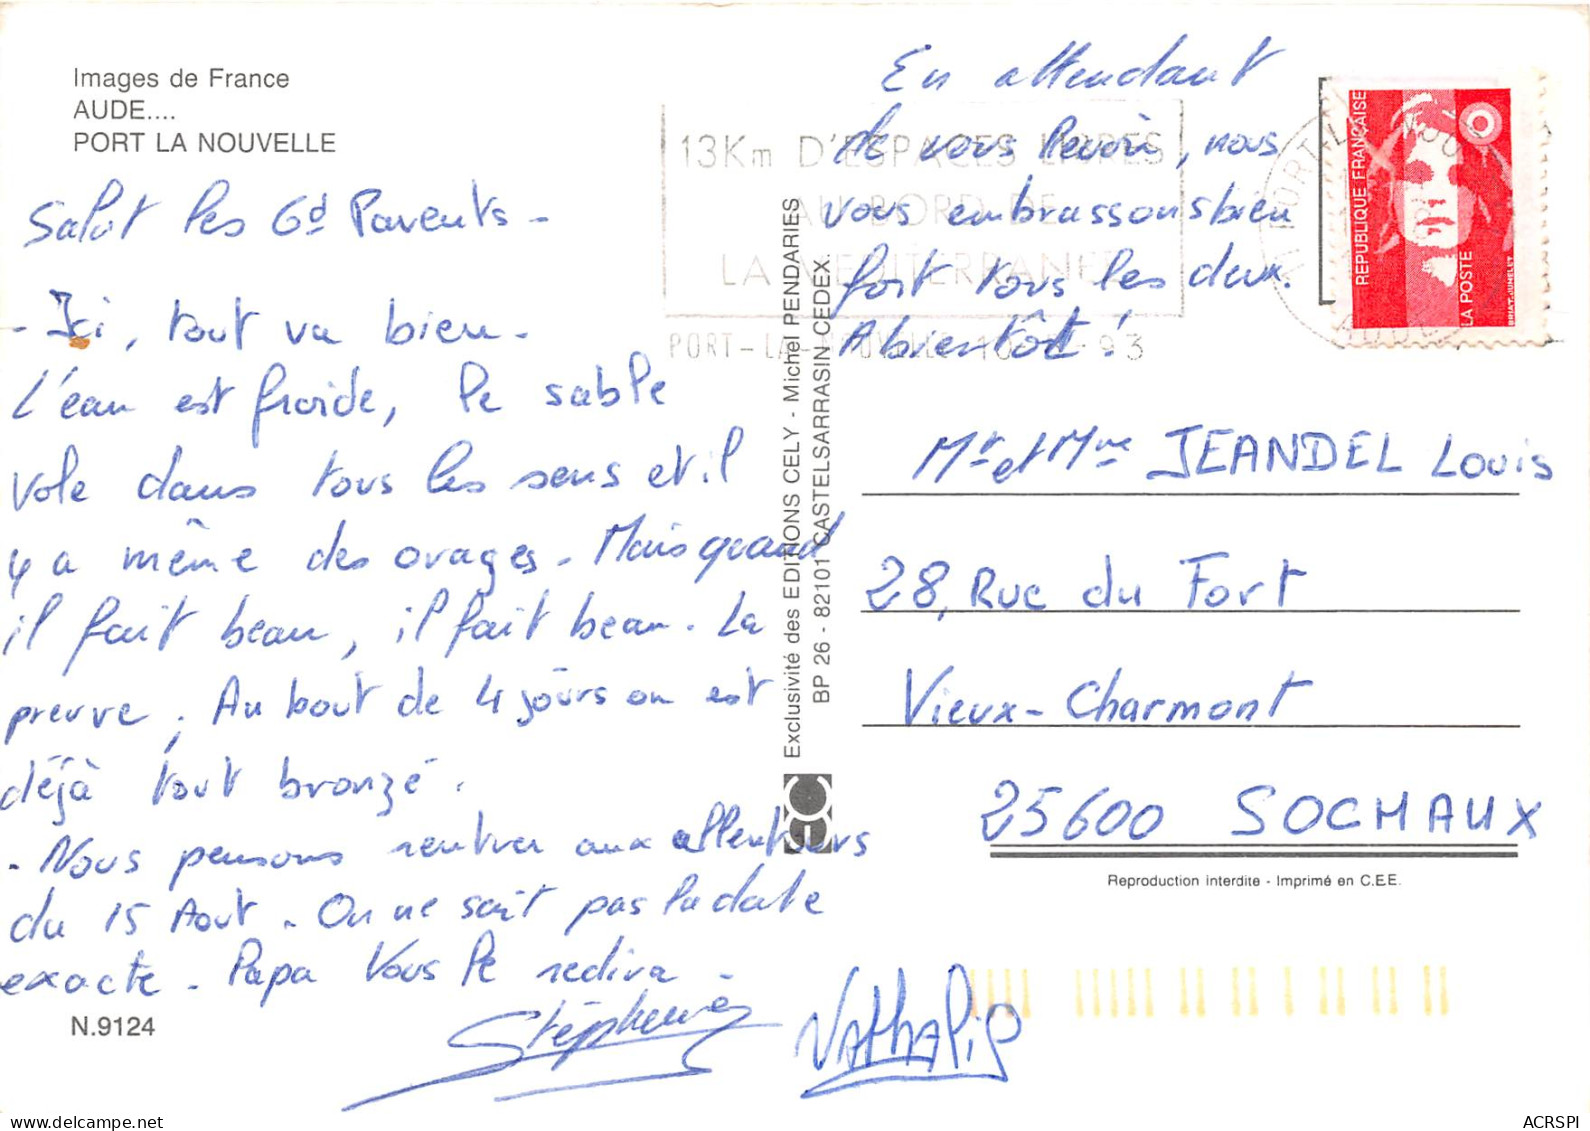 Images de France
AUDE....
PORT LA NOUVELLE
Salut les Gd Parents -
- Ici, tout va bien -
L'eau est froide, le sable
vole dans tous les sens et il
y a même des orages - Mais quand
il fait beau, il fait beau. La
preuve, Au bout de 4 jours on est
déjà tout bronzé.
- Nous pensons rentrer aux allentours
du 15 Aout - On ne sait pas la date
exacte - Papa Vous le redira -
Stéphanie
Nathalie
N.9124
En attendant
de vous Revoir, nous
vous embrassons bien
fort tous les deux.
A bientôt !
13Km D'ESPACES LIBRES
AU BORD DE
LA MEDITERRANEE
PORT-LA-NOUVELLE 93
REPUBLIQUE FRANÇAISE
LA POSTE
BRIAT-JUMELET
Exclusivité des EDITIONS CELY - Michel PENDARIES
BP 26 - 82101 CASTELSARRASIN CEDEX.
Mr et Mme JEANDEL Louis
28, Rue du Fort
Vieux-Charmont
25600 SOCHAUX
Reproduction interdite - Imprimé en C.E.E.
ACRSPI